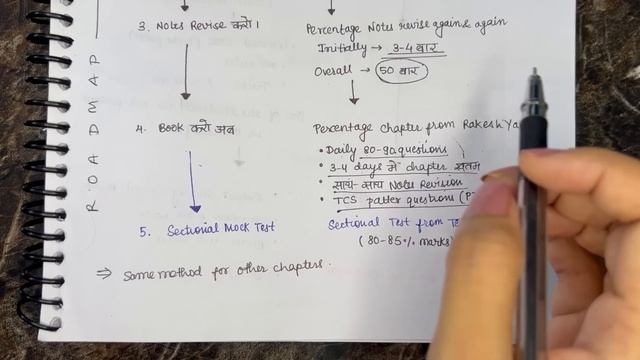 3. Notes Revise करो।
Percentage Notes revise again & again
Initially → 3-4 बार
Overall → 50 बार
4. Book करो अब
Percentage chapter from Rakesh Ya
• Daily 80-90 questions
• 3-4 days में chapter खतम
• साथ-साथ Notes Revision
• TCS patter questions (P
5. Sectional Mock Test
Sectional Test from
(80-85% marks)
⇒ Same method for other chapters.
ROADMAP